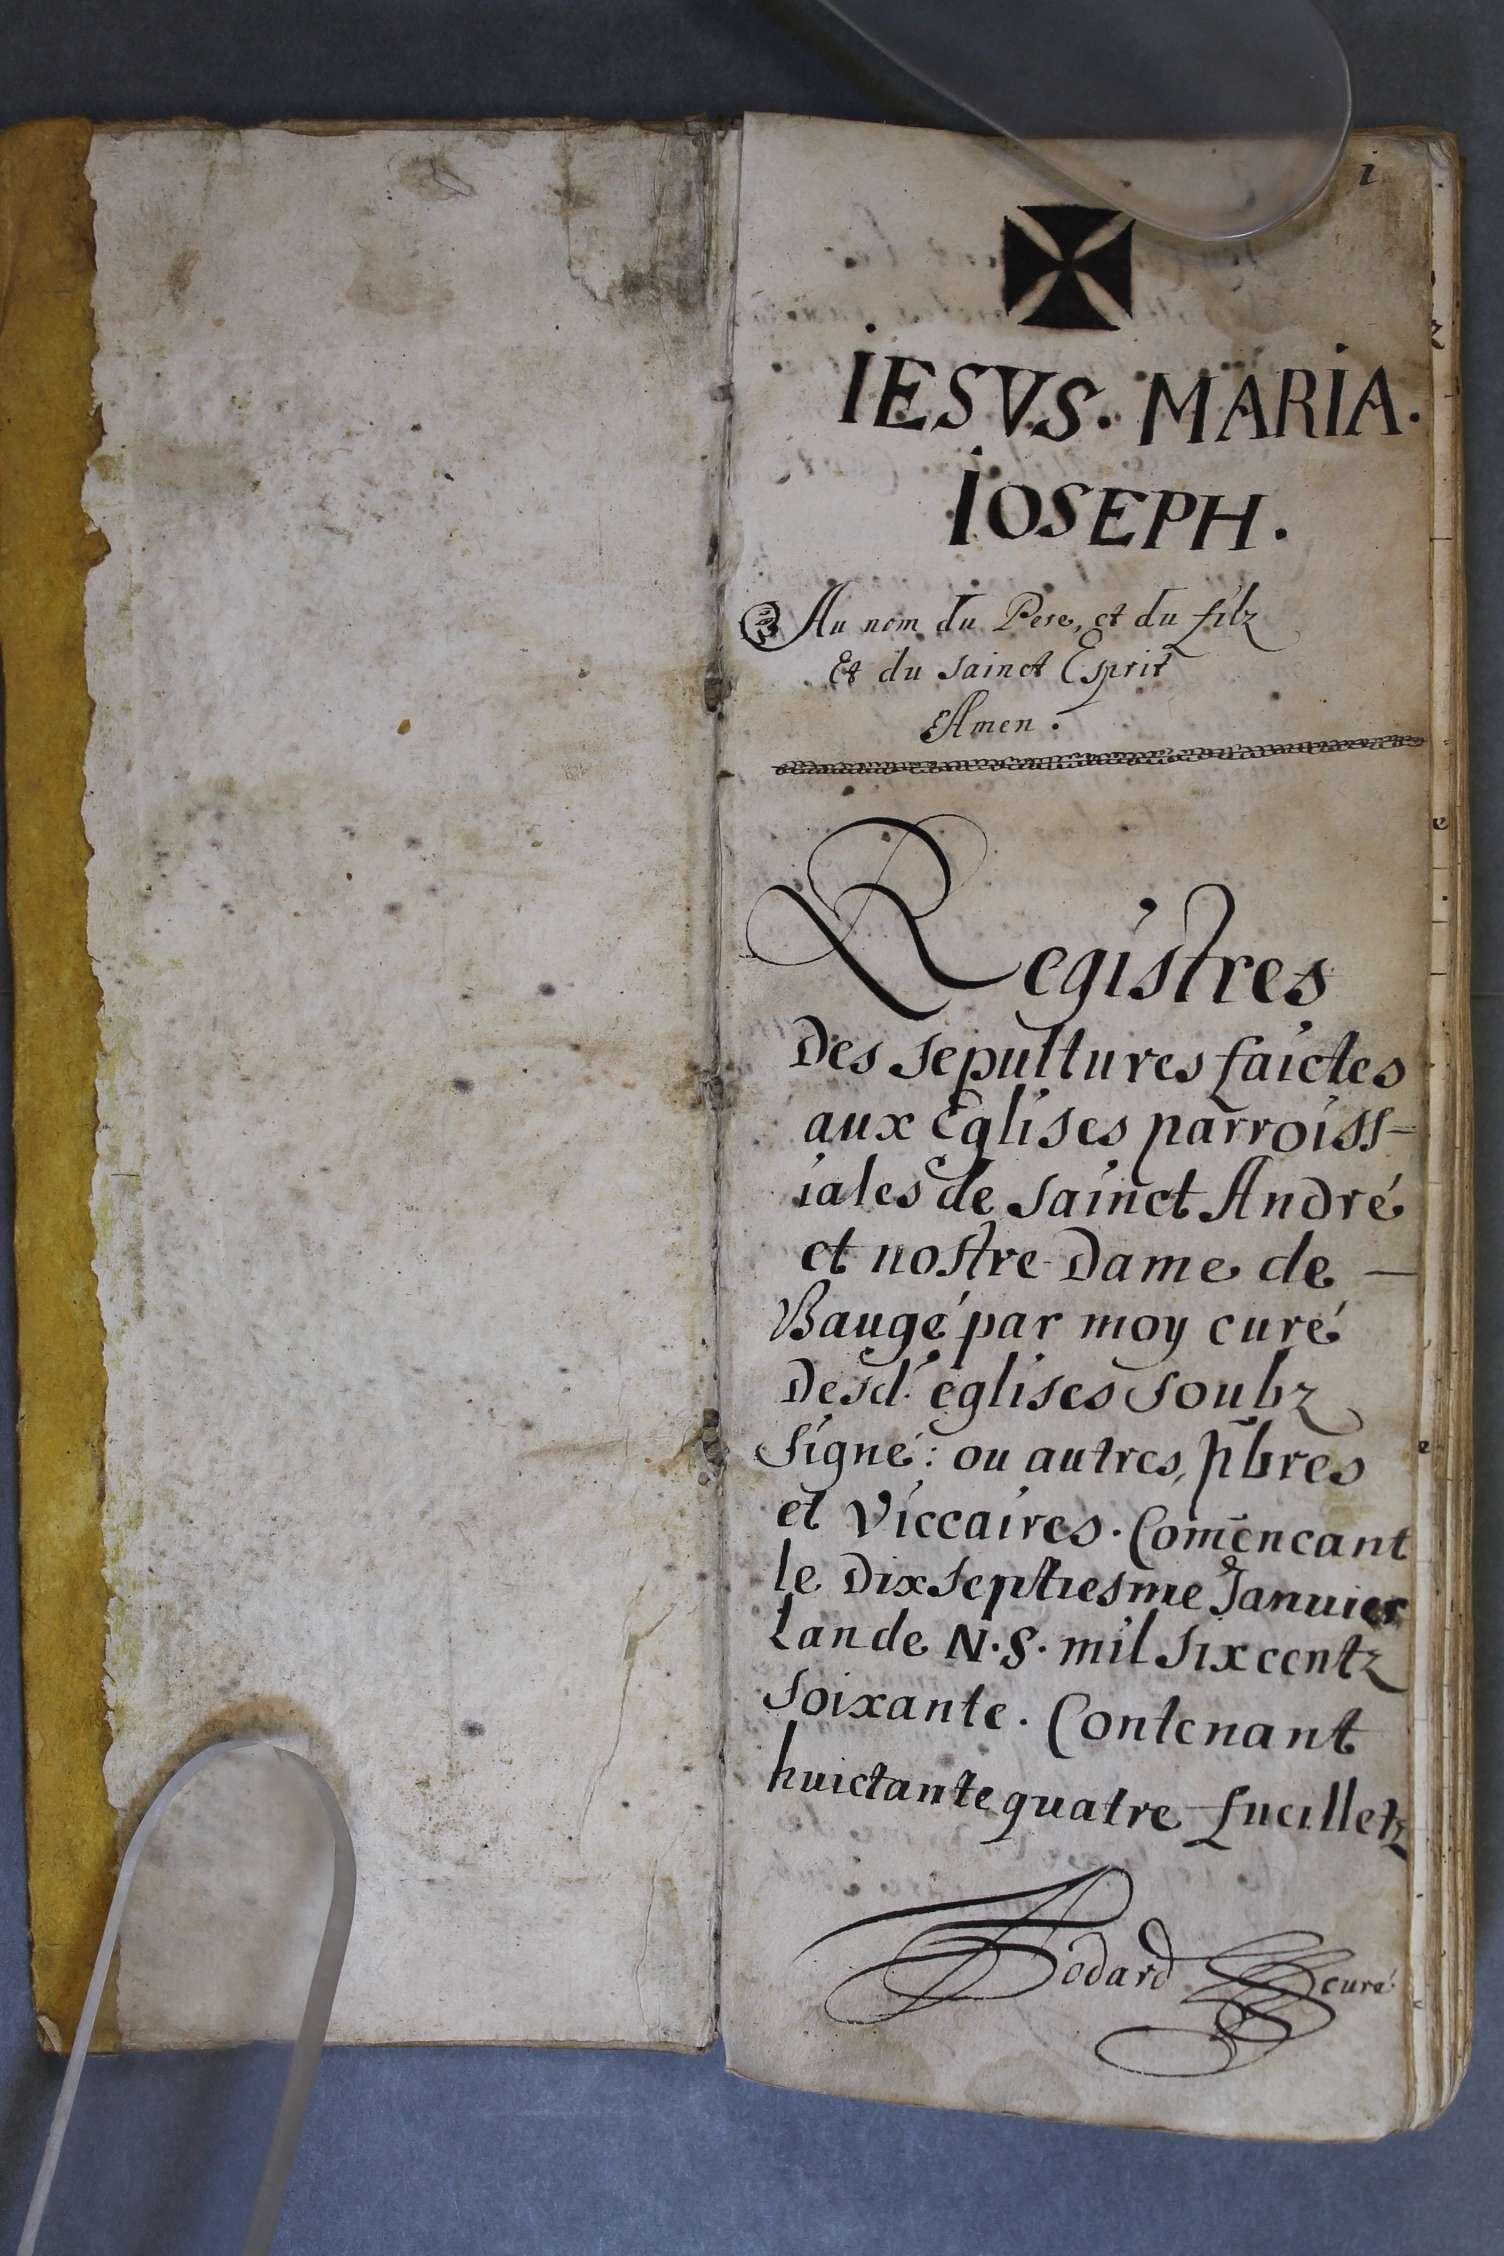 1
IESVS. MARIA.
IOSEPH.
Au nom du Pere, et du filz
Et du sainct Esprit
Amen.
Registres
Des sepultures faictes
aux Eglises parroiss-
iales de sainct André
et nostre Dame de —
Baugé par moy curé
Desd. eglises soubz
signé: ou autres, pbres
et Viccaires. Comencant
le Dix septiesme Januier
Lan de N.S. mil six centz
soixante. Contenant
huictante quatre fueilletz
curé